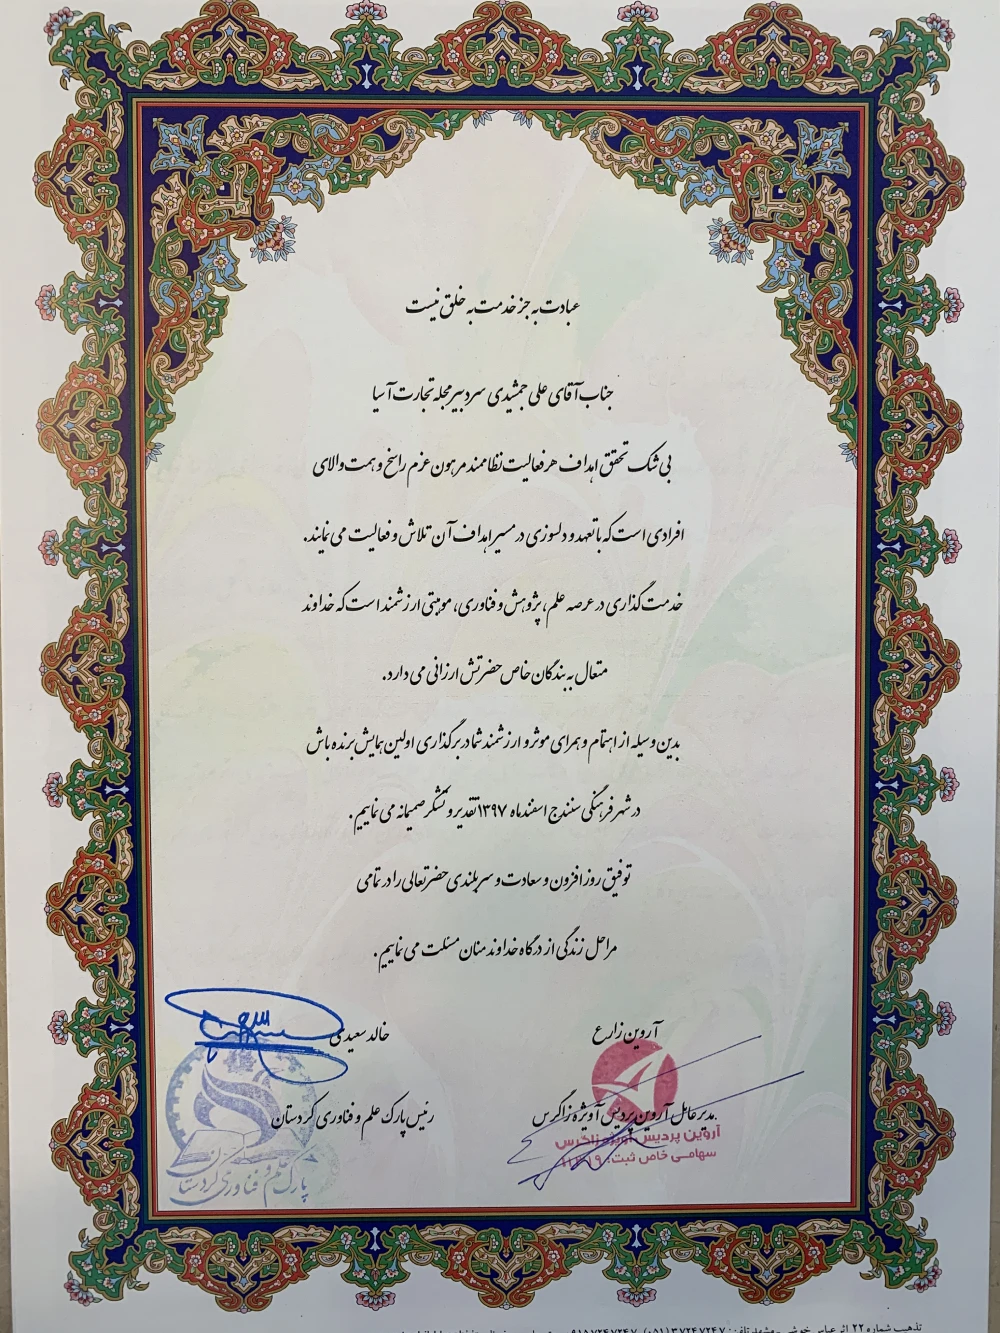 عبادت به جز خدمت به خلق نیست
جناب آقای علی جمشیدی سردبیر مجله تجارت آسیا
بی شک تحقق اهداف هر فعالیت نظاممند مرهون عزم راسخ و همت والای
افرادی است که با تعهد و دلسوزی در مسیر اهداف آن تلاش و فعالیت می نمایند.
خدمت گذاری در عرصه علم، پژوهش و فناوری، موهبتی ارزشمند است که خداوند
متعال به بندگان خاص حضرتش ارزانی می دارد.
بدین وسیله از اهتمام و همرای موثر و ارزشمند شما در برگذاری اولین همایش برنده باش
در شهر فرهنگی سنندج اسفندماه ۱۳۹۷ تقدیر و تشکر صمیمانه می نماییم.
توفیق روز افزون و سعادت و سربلندی حضرتعالی را در تمامی
مراحل زندگی از درگاه خداوند منان مسئلت می نماییم.
آروین زارع
خالد سعیدی
مدیرعامل آروین پردیس آویژه زاگرس
رئیس پارک علم و فناوری کردستان
آروین پردیس آویژه زاگرس
سهامی خاص ثبت:
پارک علم و فناوری کردستان
تذهیب شماره ۲۲ اثر عباس خوشی - مشهد تلفن: ۳۷۲۴۷۲۴۷ (۰۵۱)